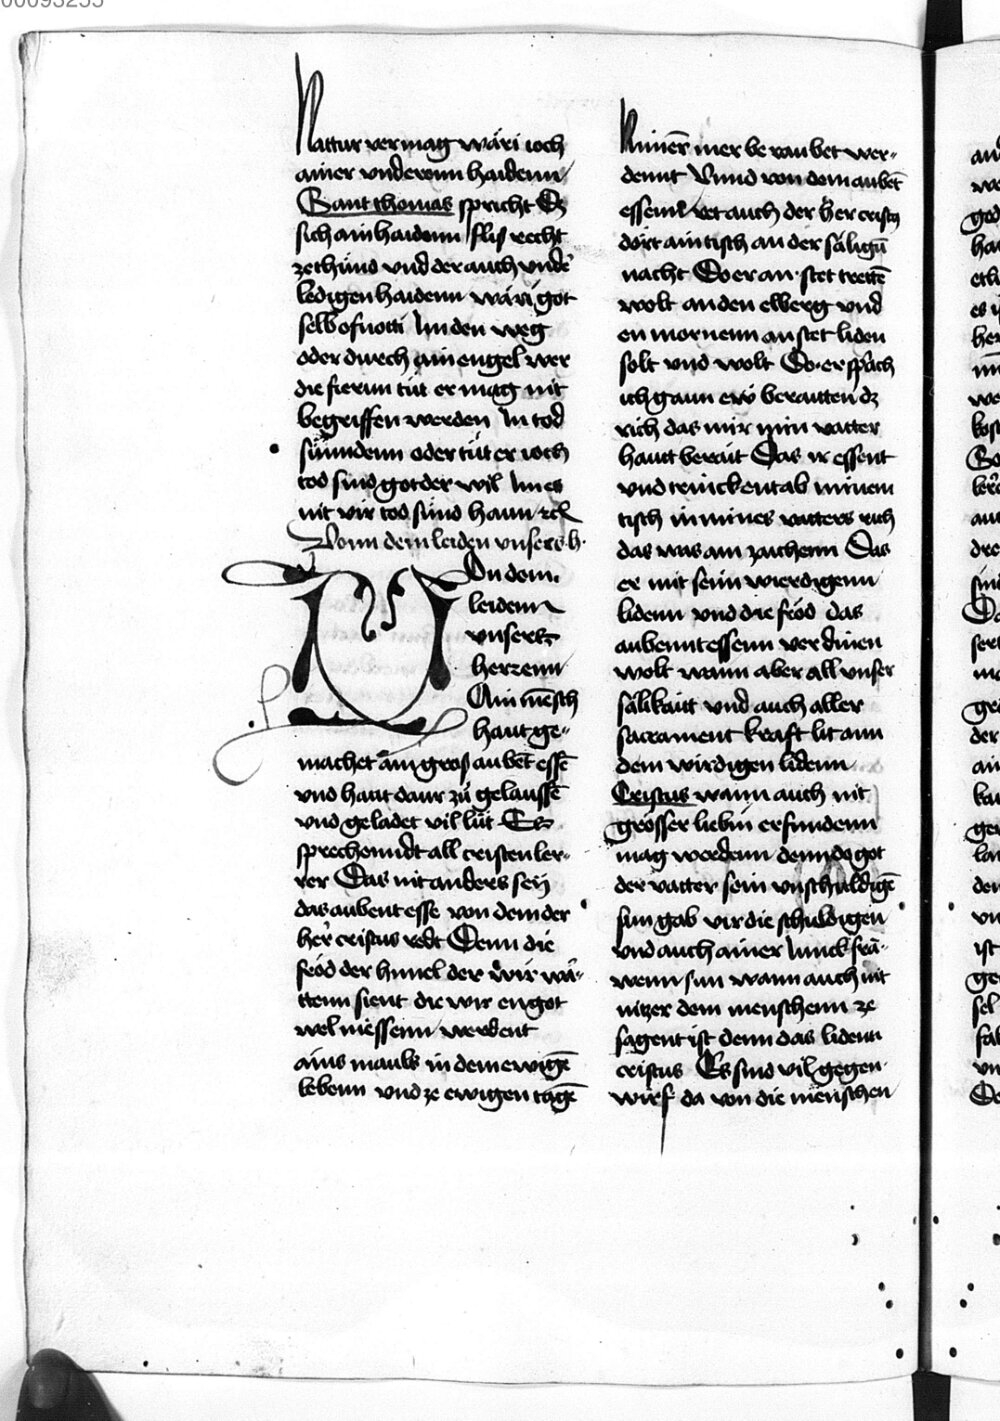 00093255
Nattur vermag wäri ioch
ainer vnderonn haidenn
Sant thomas spricht Es
sich ain haidenn flis recht
ze thund vnd der auch vnder
ledigen haidenn wäri got
selb ofnotti Im den weg
oder durch ain engel wer
die fierun tüt er mag nit
begriffen werden In tod
sünndenn oder tüt er ioch
tod sünd got der wil Im es
nit vir tod sünd hann
Vonn dem leiden vnsers h.
Von dem
leidenn
vnsers
herzenn
Ain mēsch
haut ge-
machet ain gros aubēt essē
vnd haut daur zü gelaussē
vnd geladet vil lüt Es
sprechenndt all cristen ler-
rer Das nit anders seÿ
das aubent esse von dem der
her cristus redt Denn die
fröd der himel der wir wa-
ttenn sient die wir en got
wel niessenn werdent
ains mauls in dem ewigē
lebenn vnd ze ewigen tagē
Nimer mer be raubet wer-
dennt Vnnd von dem aubēt
essenn ret auch der her cristus
dört ain tisch an der säligū
nacht Do er an stet trettē
wolt an den elberg vnd
en mornenn an stet liden
solt vnd wolt Do er sprach
ich gann ew beraitten dz
rich das mir min vatter
hautt berait Das ir essent
vnd trinckent ab minem
tisch in mines vatters rich
das was ain zaichenn Das
er mit seim wierdigenn
lidenn vnd die fröd das
aubennt essenn verdinen
wolt wann aber all vnser
sälikaitt vnd auch aller
sacrament kraft lit ann
dem wirdigen lidenn
Cristus wann auch nit
grösser liebin erfundenn
mag werdenn denn do got
der vatter sein vnschuldigē
sun gab vir die schuldigen
vnd auch ainer Iunckfrä-
wenn sun wann auch nit
nitzer dem menschenn ze
sagent ist denn das lidenn
cristus Es sind vil gegen
wurf da von die menschen